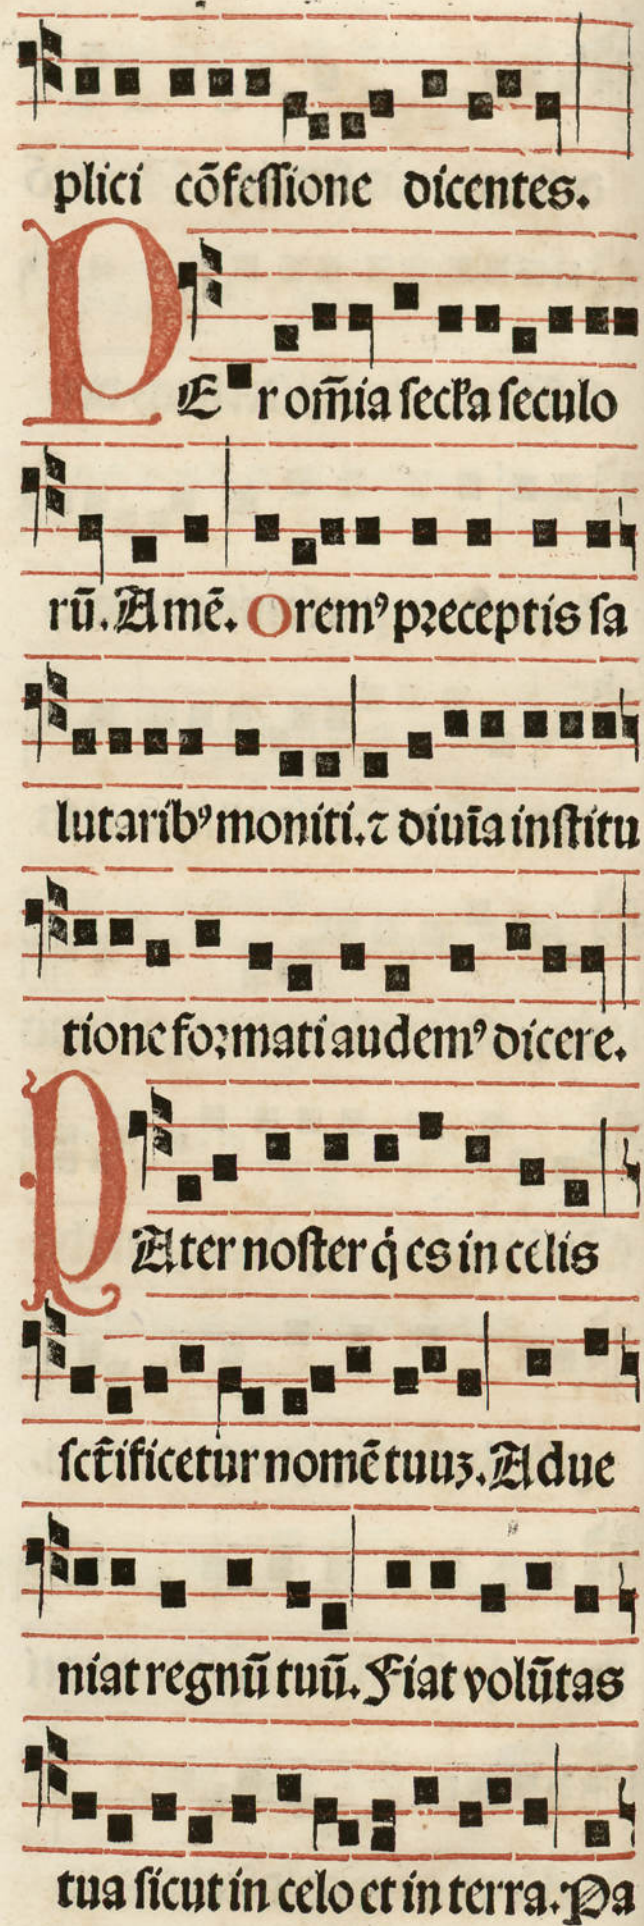 plici cõfessione dicentes.
PEr om̃ia secĺa seculo
rũ. Amẽ. Oremꝰ preceptis sa
lutaribꝰ moniti. ⁊ diuĩa institu
tione formati audemꝰ dicere.
PAter noster q̇ es in celis
sct̃ificetur nomẽ tuuꝫ. Adue
niat regnũ tuũ. Fiat volũtas
tua sicut in celo et in terra. Pa